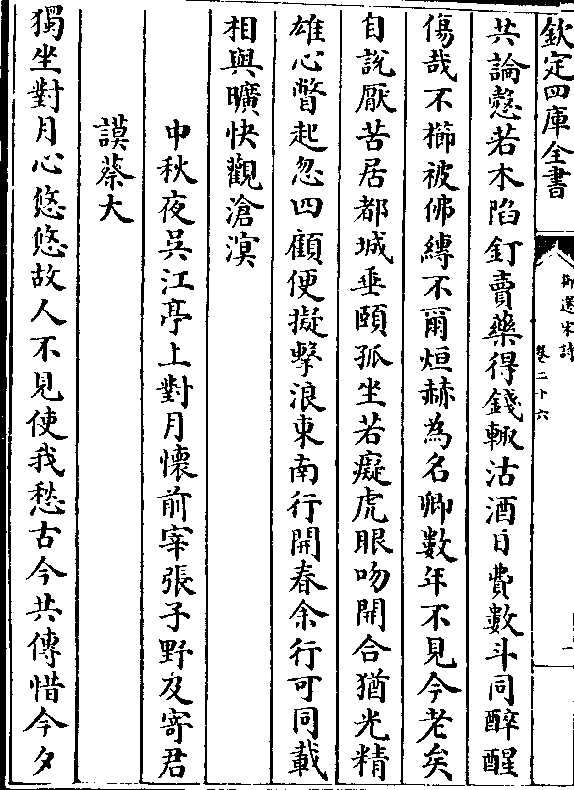 欽定四庫全書
御選宋詩
卷二十六
共論慤若木陷釘賣藥得錢輒沽酒日費數斗同醉醒
傷哉不櫛被佛縛不爾烜赫為名卿數年不見今老矣
自說厭苦居都城垂頤孤坐若癡虎眼吻開合猶光精
雄心瞥起忽四顧便擬擊浪東南行開春余行可同載
相與曠快觀滄溟
中秋夜吳江亭上對月懷前宰張子野及寄君
謨蔡大
獨坐對月心悠悠故人不見使我愁古今共傳惜今夕